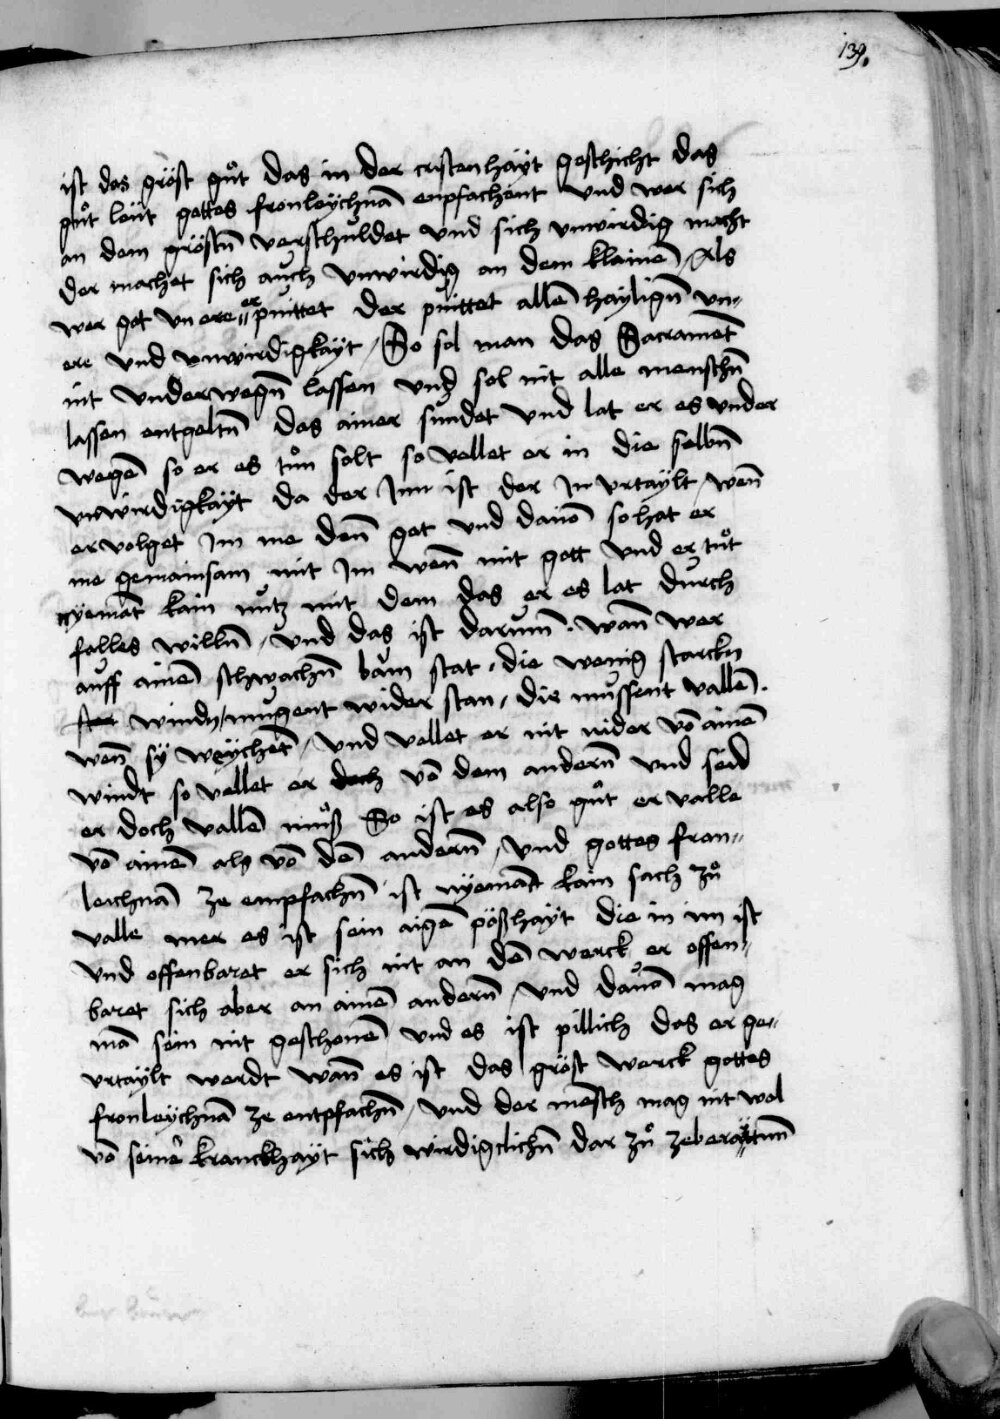 139.
ist das gröst gůt das in der cristenhäyt geschicht das
gůt leüt gottes fronleychnā enpfachent Vnd wer sich
an dem gröstn̄ verschuldet vnd sich vnwirdig macht
der machet sich auch Vnwirdig an dem klainē / Als
wer got vn ere er puittet der puittet allē haylign̄ vn„
ere vnd vnwirdigkäyt / So sol man das Sacramēt
nit vnderwegn̄ lassen vnd sol nit alle menschn̄
lassen entgeltn̄ des ainer sundet Vnd lat er es vnder
wegē so er es tůn solt so vellet er in die selbn̄
vnwirdigkäyt da der Inn ist der In vrtaylt / wen̄
er volget Im me den̄ got vnd dauō so hat er
me gemainsam mit Im wen̄ mit gott Vnd er tůt
nyemāt kain nutz mit dem das er es lat durch
falles willn̄ / vnd das ist darum̄ . wan̄ wer
auff ainē schwachn̄ bam stat . die wenig starckn
windn / mugent wider stan / die mussent vallē .
wen̄ sÿ weychēt / Vnd vellet er nit nider vō ainē
windt so vellet er doch vō dem andern̄ vnd seid
er doch vallē můß So ist es also gůt er valle
vō ainē als vō dē andern̄ / Vnd gottes fron„
leichnā ze empfachn̄ ist nyemāt kain sach zů
valle mer es ist sein aigē pößhäyt die in im ist
Vnd offenbaret er sich nit an dē werck er offen„
baret sich aber an ainē andern̄ / Vnd dauō mag
mā sein nit geschonē vnd es ist pillich das er ge„
vrtaylt werdt wan̄ es ist das gröst werck gottes
fronleychnā ze entpfachn̄ / Vnd der mēsch mag nit wol
vō seinē kranckhäyt sich wirdigclichn̄ dar zů zeberäittnn̄